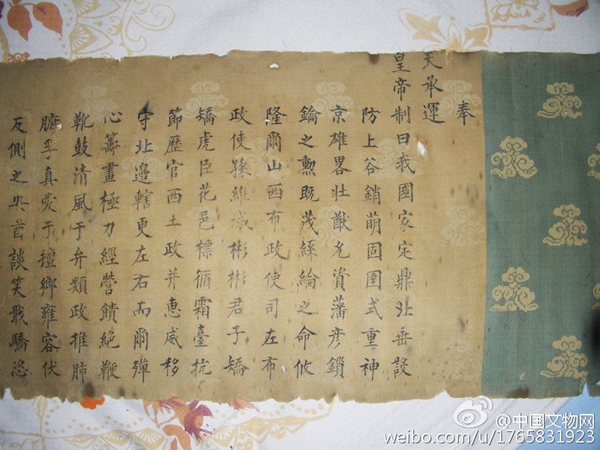 奉
天承運
皇帝制曰我國家定鼎北垂設
防上谷銷萌固圉式重神
京雄畧壯猷允資藩彦鎖
鑰之勲既茂綵綸之命攸
隆爾山西布政使司左布
政使孫維城彬彬君子矯
矯虎臣花邑標循霜臺抗
節歷官西土政并惠威移
守北邊轄更左右而爾殫
心籌畫極力經營饋絶鞭
靴鼓清風于弁類政推肺
膓孚真愛于氊鄉雍容伏
反側之與首談笑戢驕恣
中国文物网
weibo.com/u/1765831923